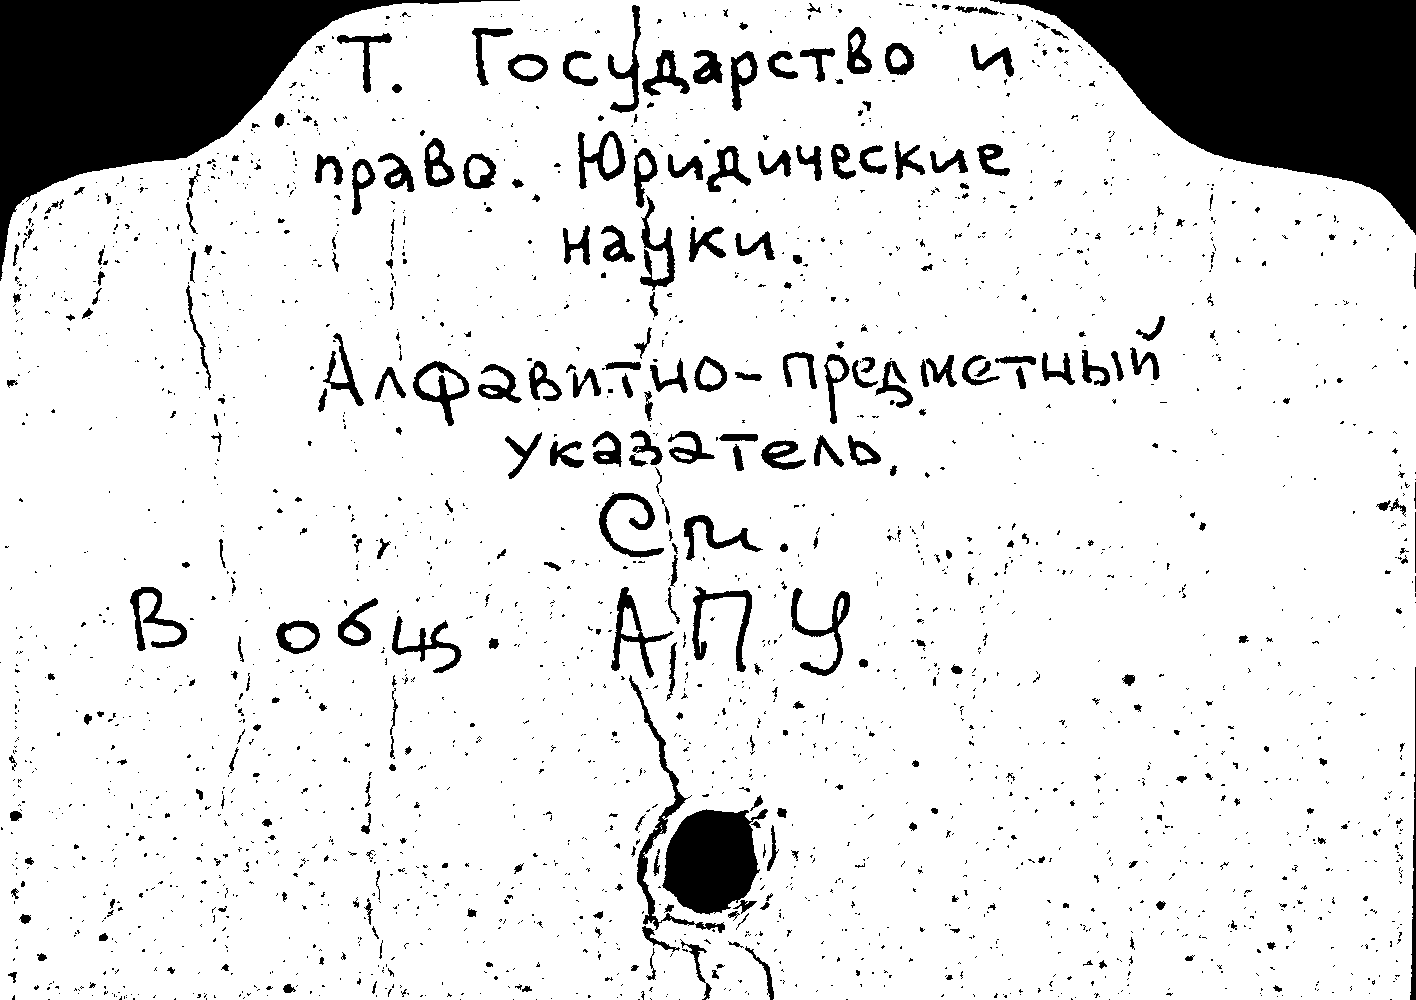 Т. Государство и
право. Юридические
науки.
Алфавитно-предметный
указатель.
См.
В общ. АПУ.